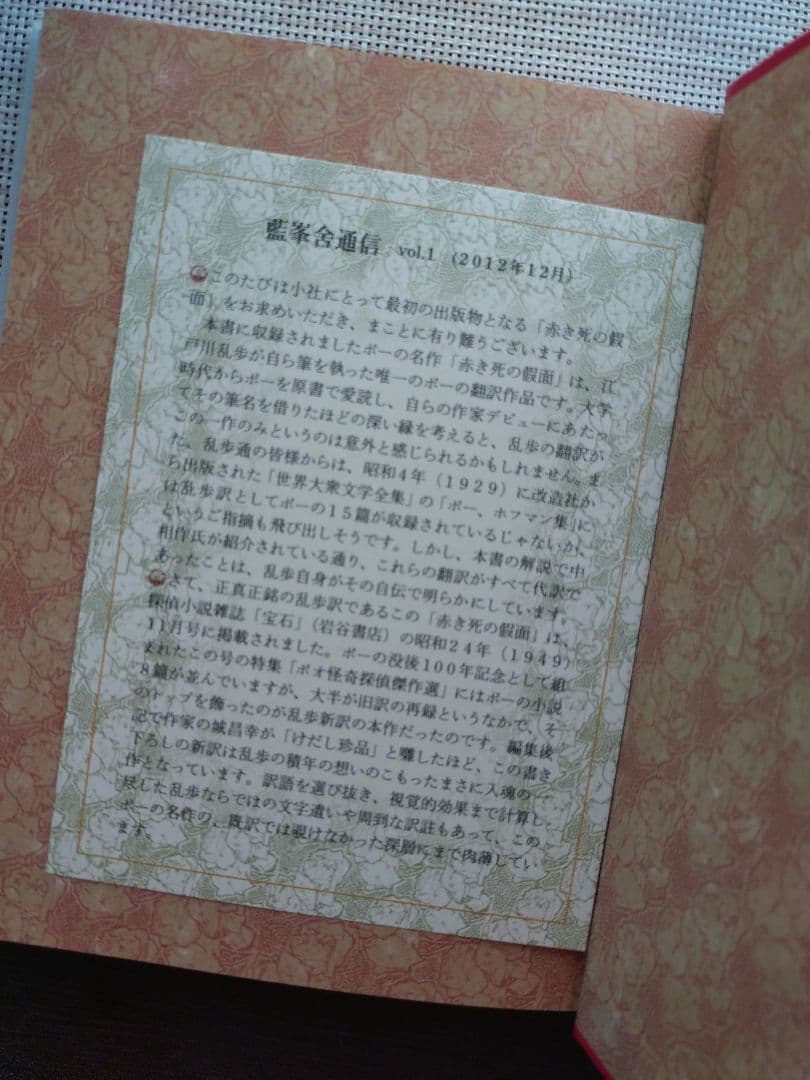 藍峯舎通信 vol.1 (2012年12月)
このたびは小社にとって最初の出版物となる「赤き死の假
面」をお求めいただき、まことに有り難うございます。
本書に収録されましたポーの名作「赤き死の假面」は、江
戸川乱歩が自ら筆を執った唯一のポーの翻訳作品です。大学
時代からポーを原書で愛読し、自らの作家デビューにあたっ
てその筆名を借りたほどの深い縁を考えると、乱歩の翻訳が
この一作のみというのは意外と感じられるかもしれません。ま
た、乱歩通の皆様からは、昭和4年(1929)に改造社か
ら出版された「世界大衆文学全集」の「ポー、ホフマン集」に
は乱歩訳としてポーの15篇が収録されているじゃないか、
というご指摘も飛び出しそうです。しかし、本書の解説で中
相作氏が紹介されている通り、これらの翻訳がすべて代訳で
あったことは、乱歩自身がその自伝で明らかにしています。
さて、正真正銘の乱歩訳であるこの「赤き死の假面」は、
探偵小説雑誌「宝石」(岩谷書店)の昭和24年(1949)
11月号に掲載されました。ポーの没後100年記念として組
まれたこの号の特集「ポオ怪奇探偵傑作選」にはポーの小説
8篇が並んでいますが、大半が旧訳の再録というなかで、そ
のトップを飾ったのが乱歩新訳の本作だったのです。編集後
記で作家の城昌幸が「けだし珍品」と囃したほど、この書き
下ろしの新訳は乱歩の積年の想いのこもったまさに入魂の一
作となっています。訳語を選び抜き、視覚的効果まで計算し
尽した乱歩ならではの文字遣いや周到な訳註もあって、この
ポーの名作の、既訳では覗けなかった深層にまで肉薄してい
ます。